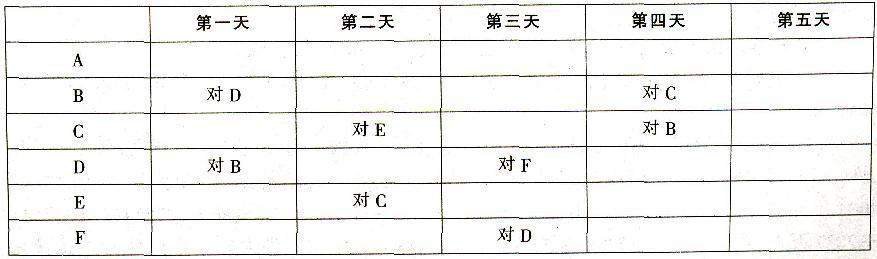 第一天 第二天 第三天 第四天 第五天
A
B 对 D 对 C
C 对 E 对 B
D 对 B 对 F
E 对 C
F 对 D